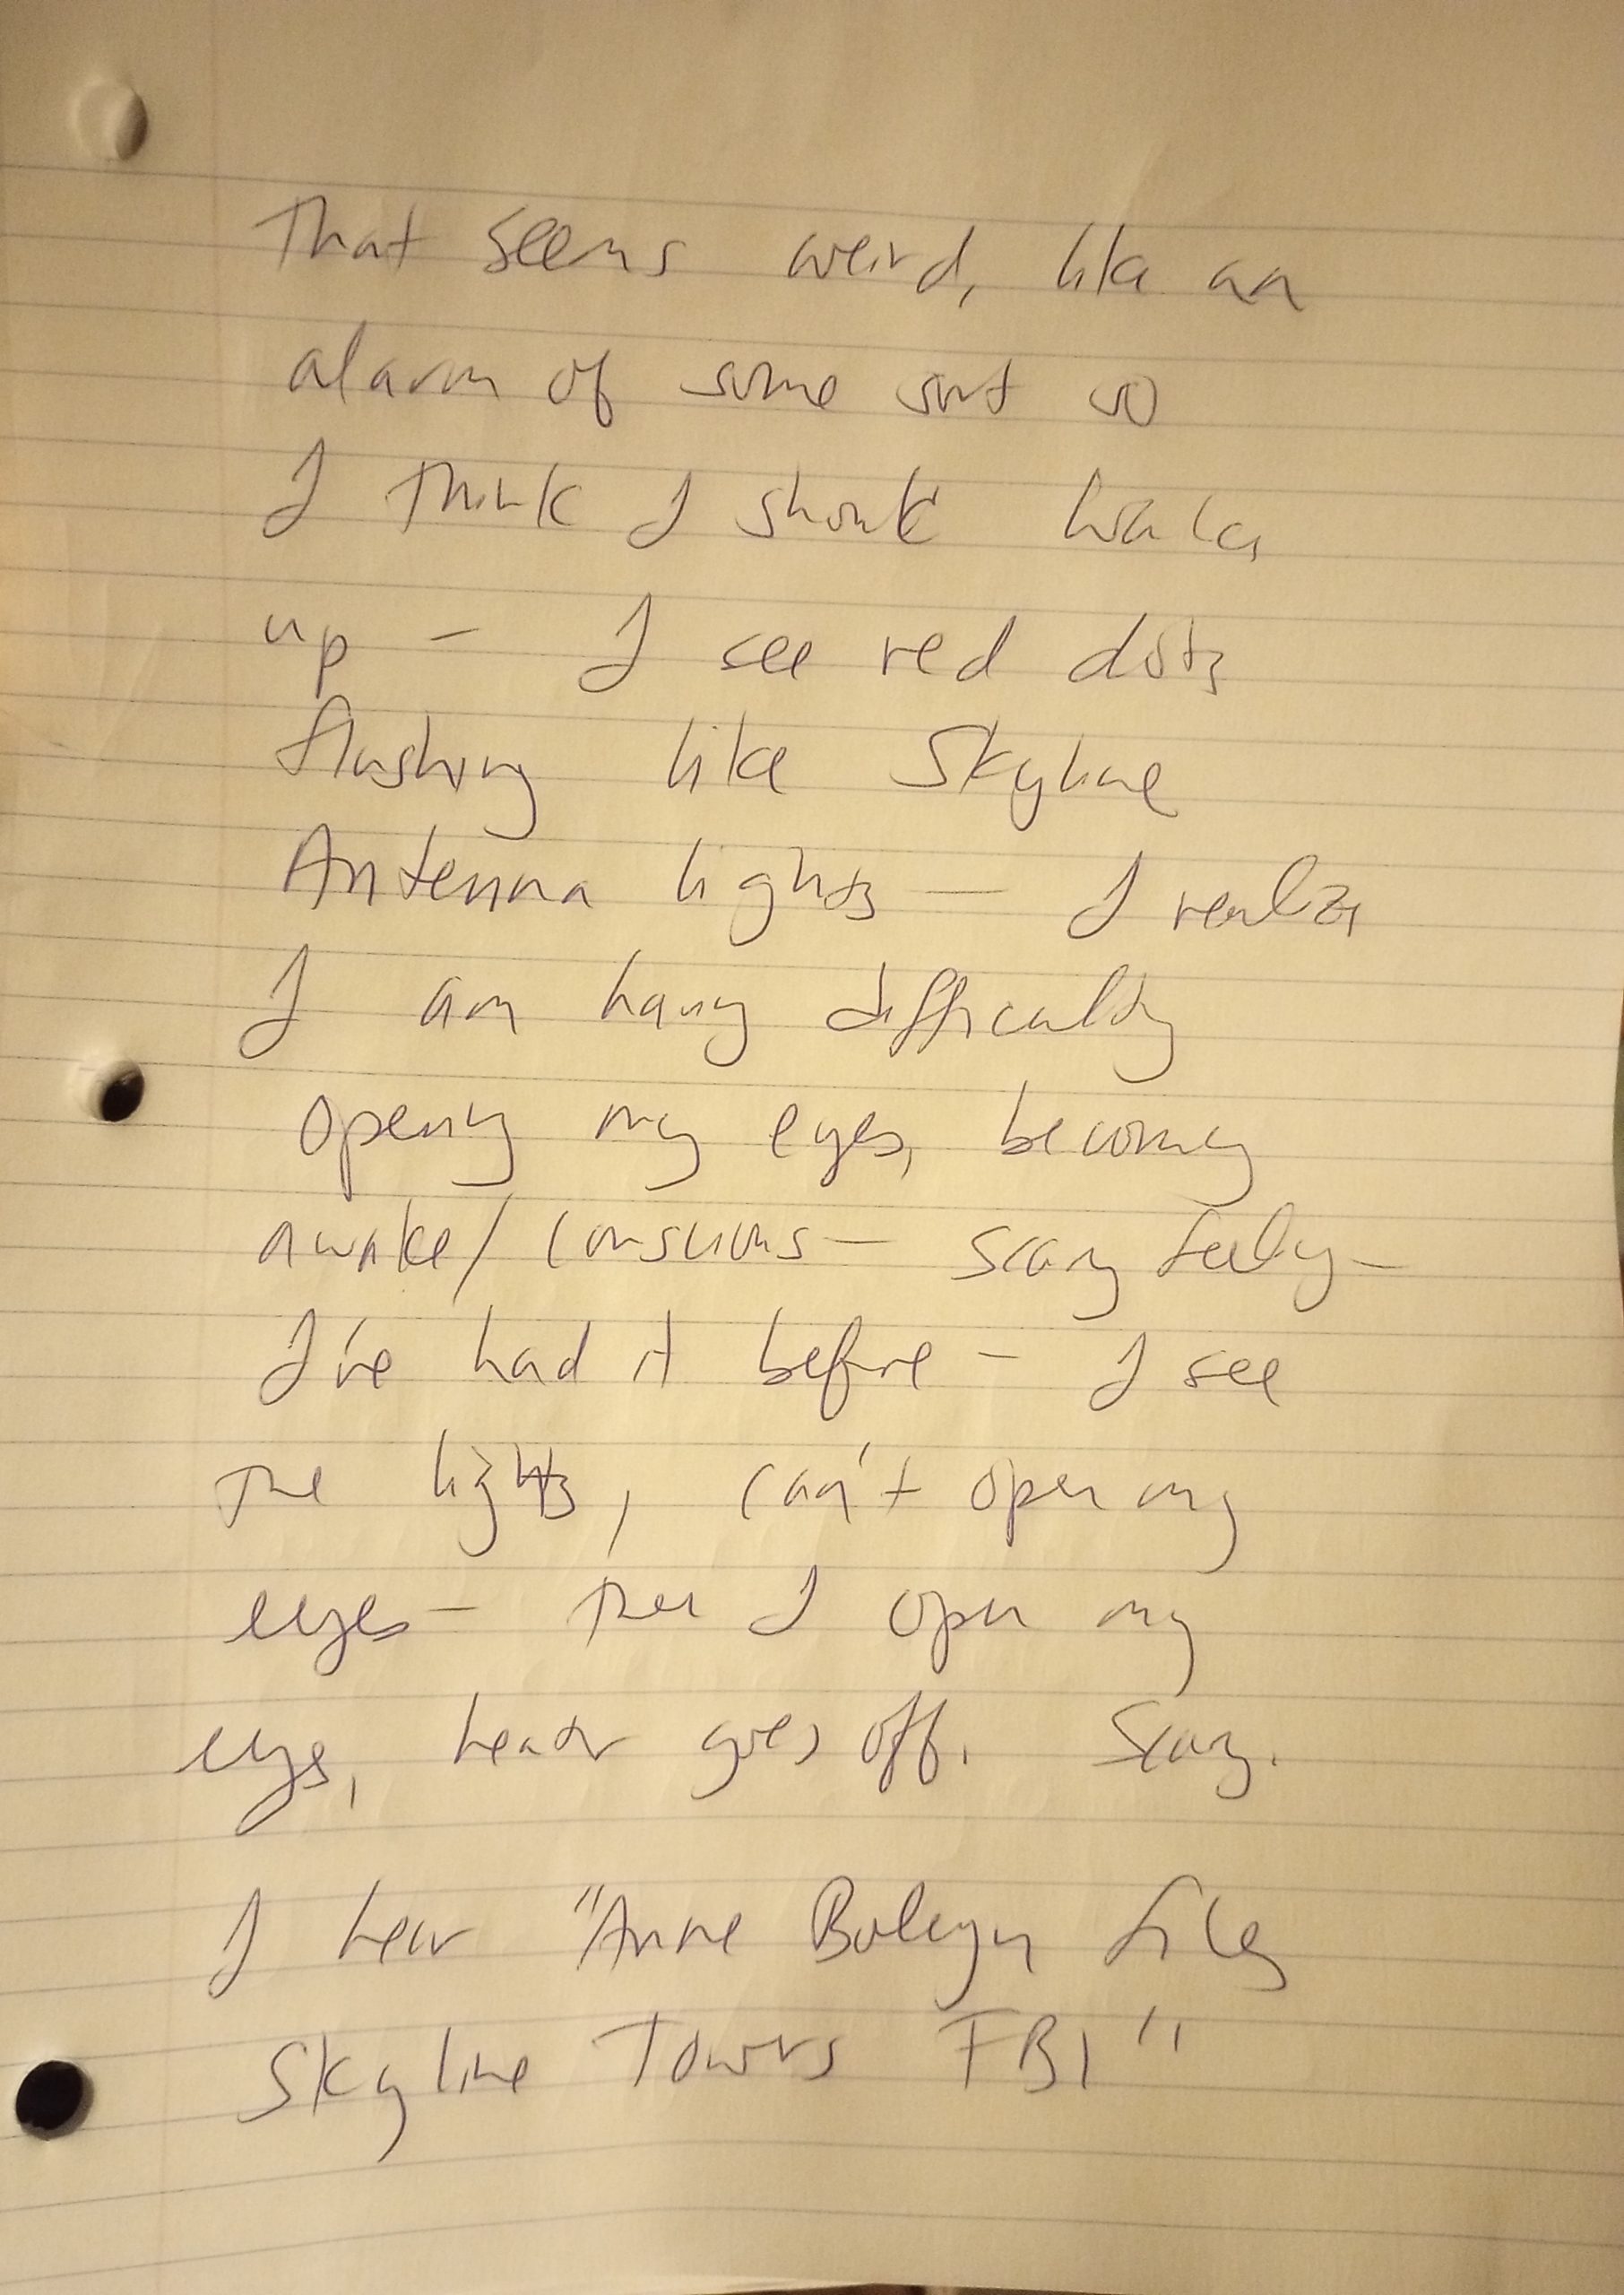 That seems weird, like an
alarm of some sort so
I think I should wake
up - I see red dots
flashing like Skyline
Antenna lights - I realize
I am having difficulty
opening my eyes, becoming
awake/conscious - scary feeling -
I've had it before - I see
the lights, can't open my
eyes - then I open my
eyes, heater goes off. Scary.
I hear "Anne Boleyn files
Skyline Towers FBI"